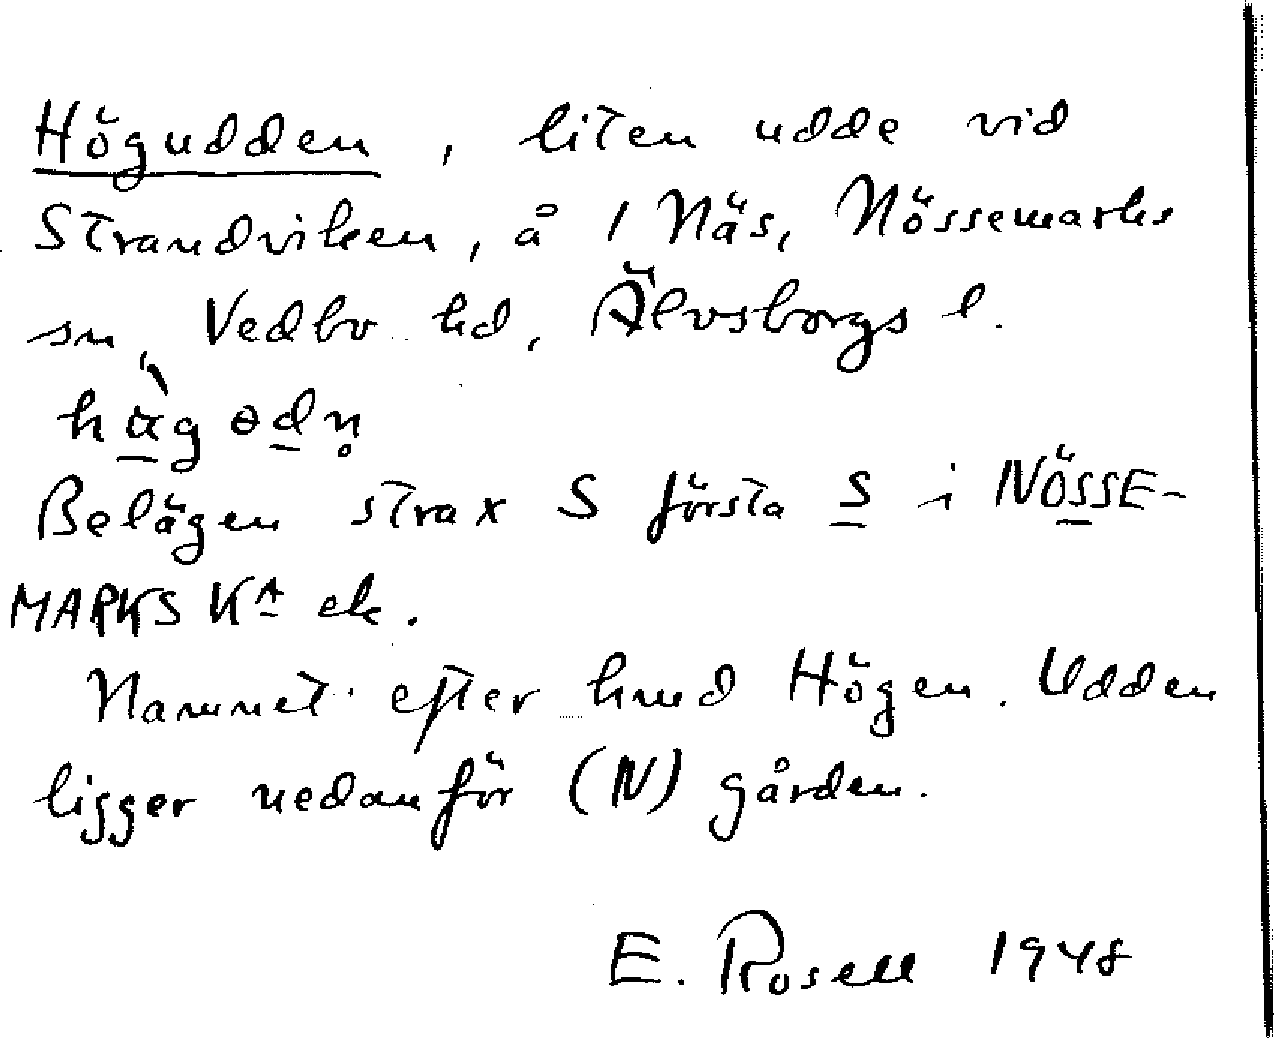 Högudden, liten udde vid
Strandviken, å 1 Näs, Nössemarks
sn, Vedbo hd, Älvsborgs l.
Belägen strax S första s i NÖSSE-
MARKS KA ek.
Namnet efter hmd Högen. Udden
ligger nedanför (N) gården.
E. Rosell 1948